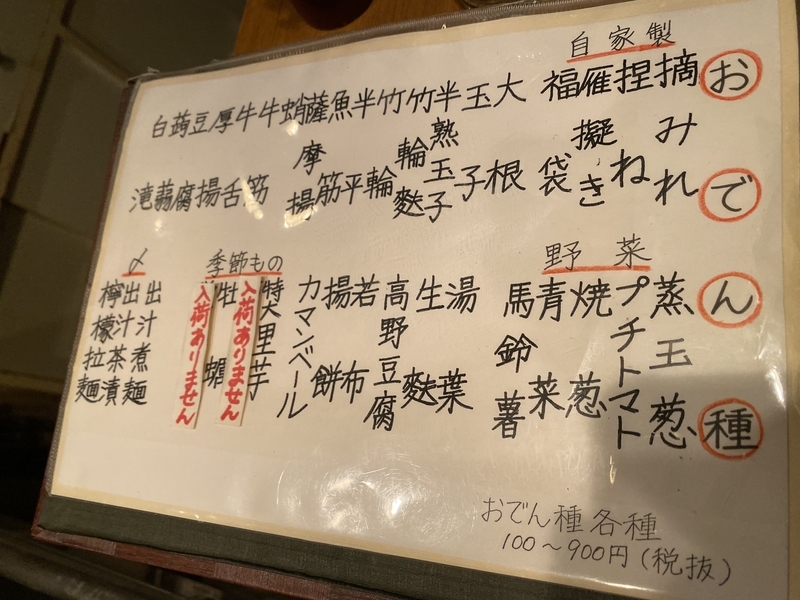 おでん種
自家製
摘みれ
捏ね
雁擬き
福袋
大根
玉子
半熟玉子
竹輪麩
竹輪
半平
魚筋
薩摩揚
蛸
牛筋
牛舌
厚揚
豆腐
蒟蒻
白滝
野菜
蒸玉葱
プチトマト
焼葱
青菜
馬鈴薯
湯葉
生麩
高野豆腐
若布
揚餅
カマンベール
季節もの
特大里芋
入荷ありません
牡蠣
入荷ありません
〆
出汁煮麺
出汁茶漬
檸檬拉麺
おでん種各種
100〜900円(税抜)